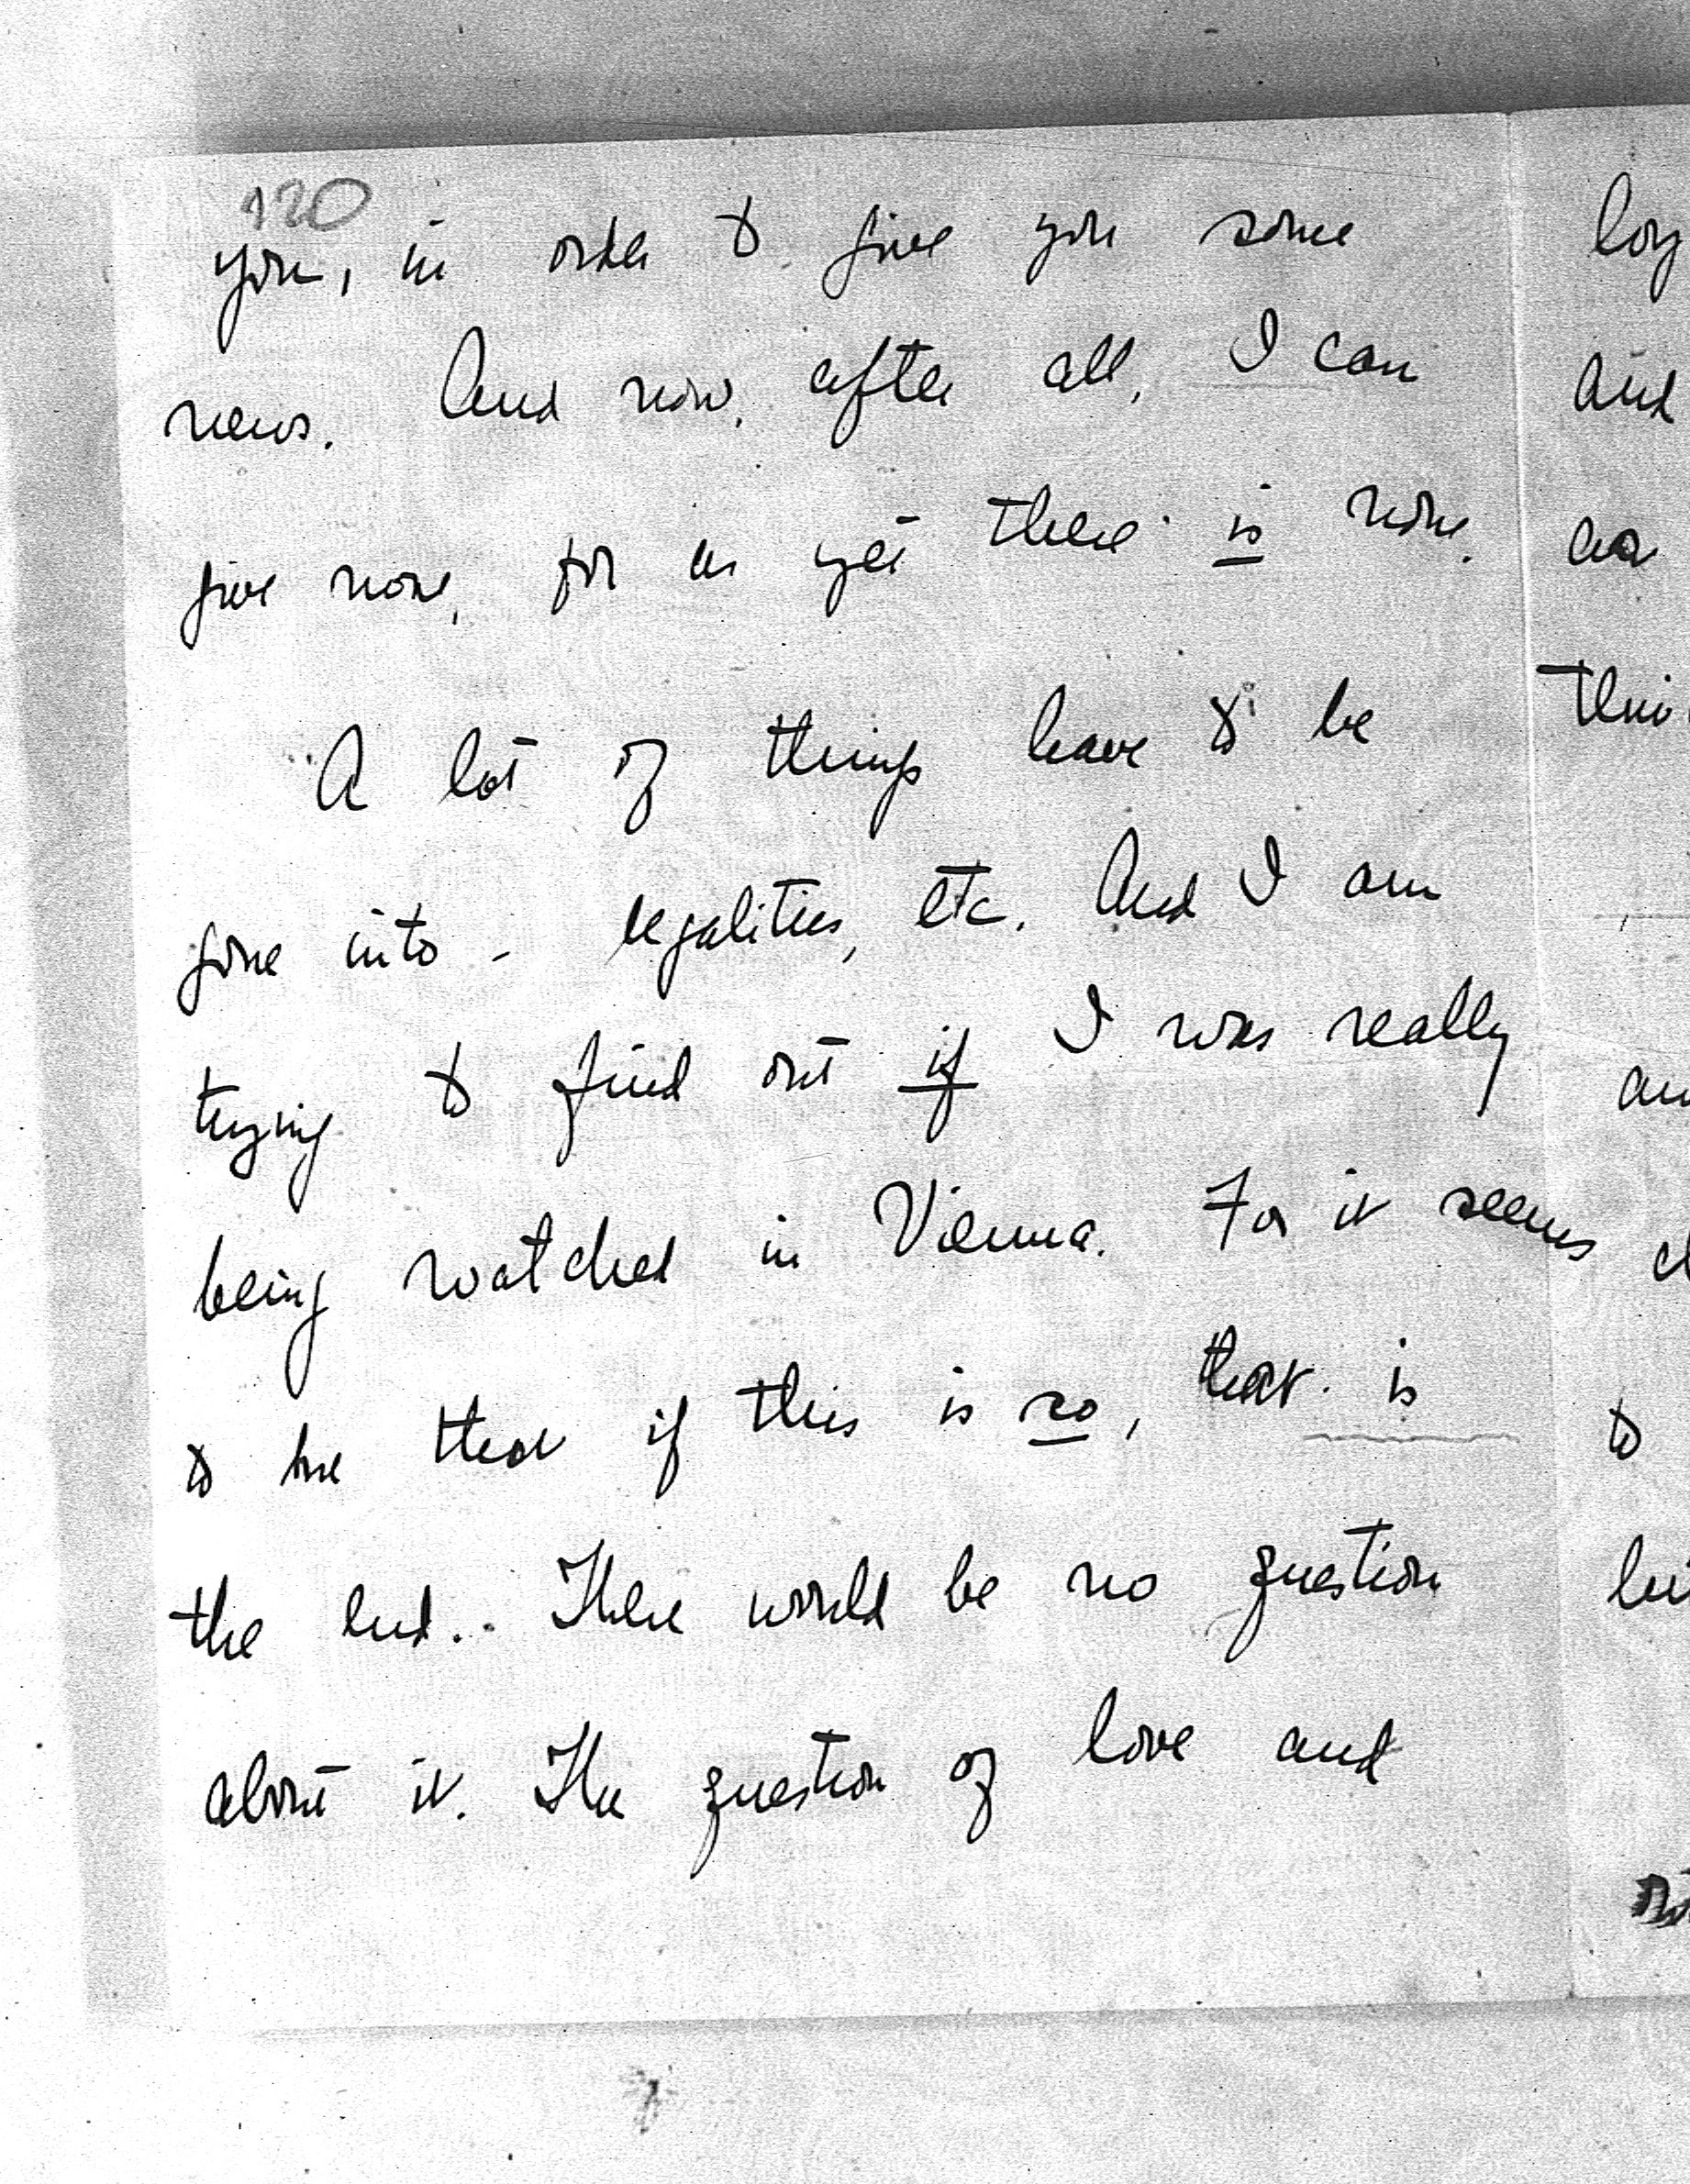 120
you, in order to give you some
news. And now, after all, I can
give none, for as yet there is none.
A lot of things have to be
gone into - legalities, etc. And I am
trying to find out if I was really
being watched in Vienna. For it seems
to me that if this is so, that is
the end.. There would be no question
about it. The question of love and